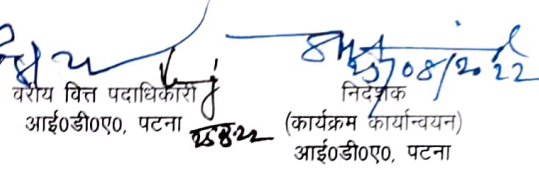 25/08/2022
वरीय वित्त पदाधिकारी
आई0डी0ए0, पटना
25.8.22
निदेशक
(कार्यक्रम कार्यान्वयन)
आई0डी0ए0, पटना